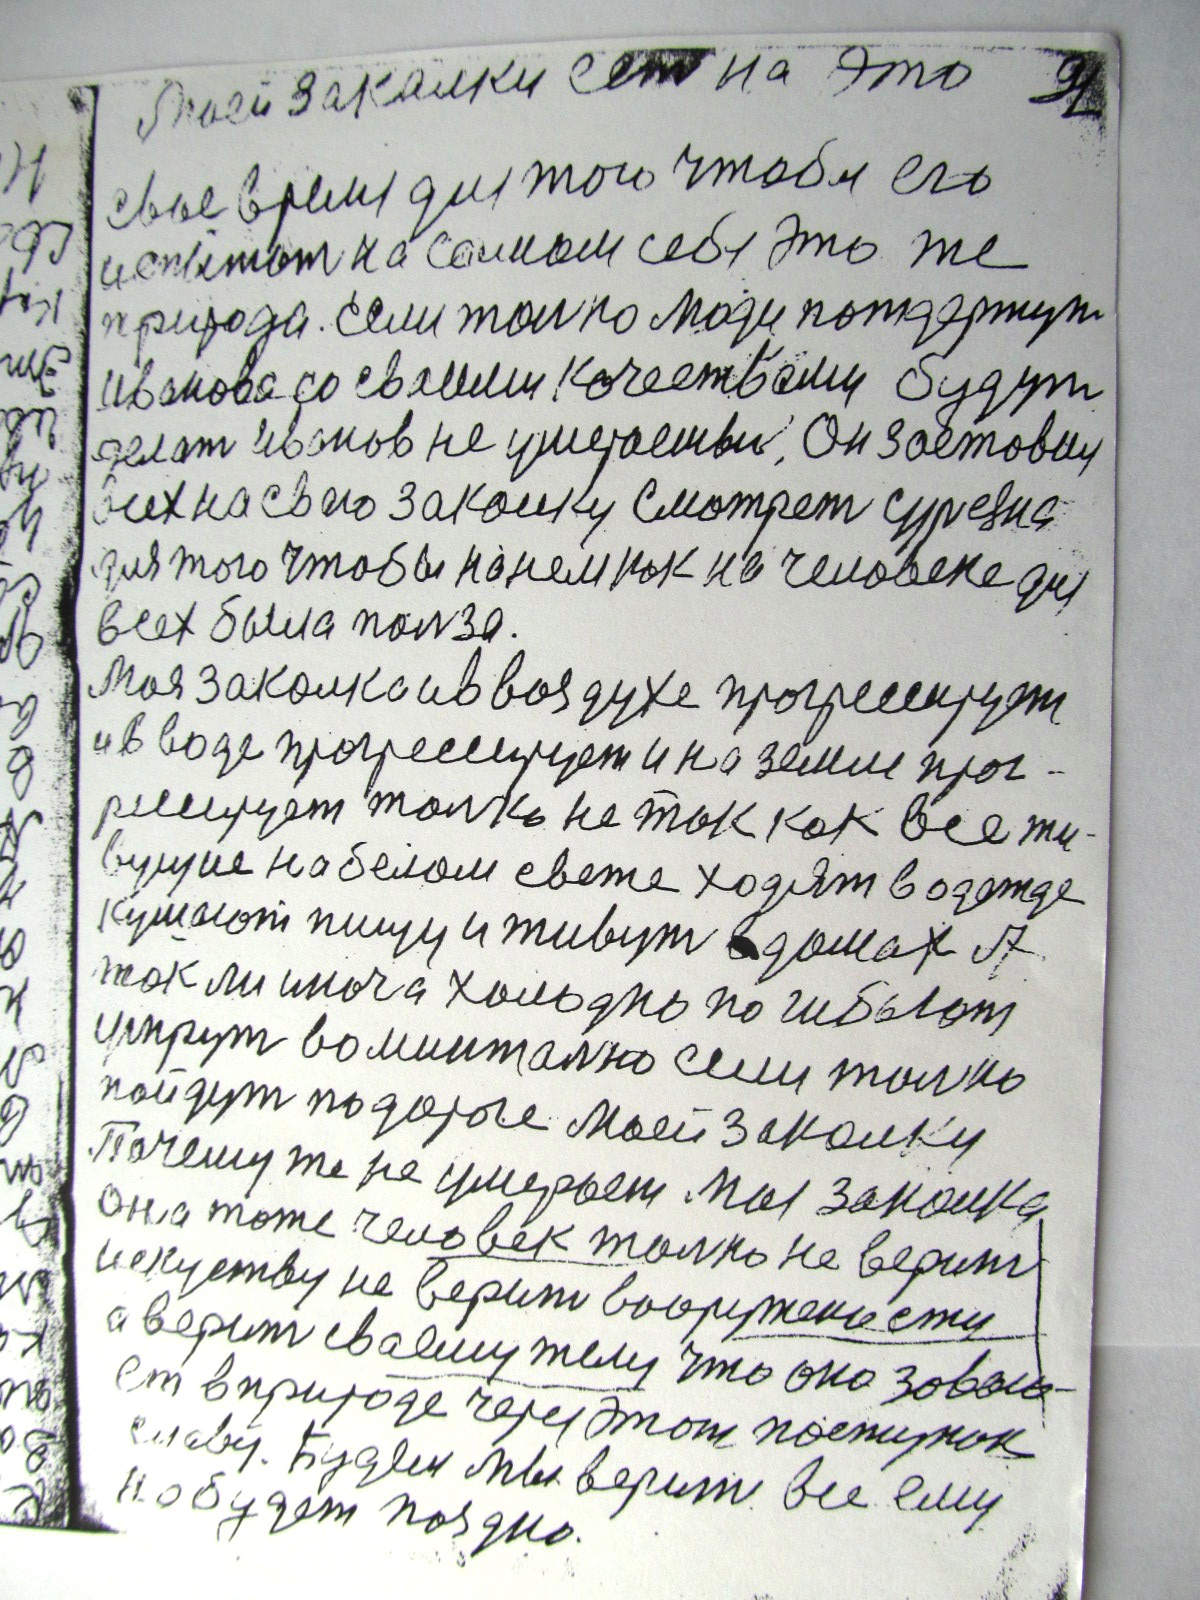 Моей закалки ест на это 91
свое время для того чтобы его
испытат на самом себя это же
природа. Если толко люди потдержут
Иванова со своими качествами будут
делат Иванов не умераемый, Он заставил
всех на свою закалку смотрет сурезна
для того чтобы на нем как на человеке для
всех была полза.
Моя закалка и в воздухе прогрессирует
и в воде прогрессирует и на земли прог-
рессирует толко не так как все жи-
вущие на белом свете ходят в одежде
кушают пищу и живут в домах А
так ли иноча холодно погибают
умрут моминтално если толко
пойдут по дороге моей закалки
Почему же не умерает моя закалка
она тоже человек толко не верит
искуству не верит вооруженасти
а верит своему телу что оно завоюа-
ет в природе через этот поступок
славу. Будем мы верит все ему
но будет поздно.